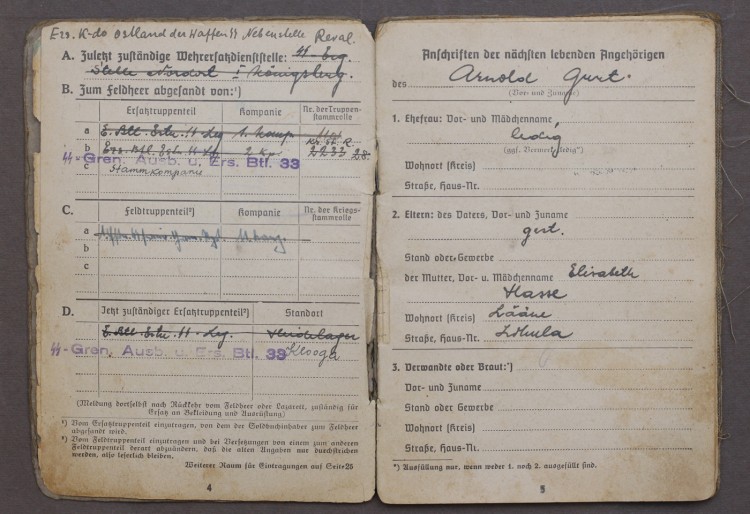 Ers. K-do Ostland der Waffen SS Nebenstelle Reval.
A. Zuletzt zuständige Wehrersatzdienststelle: SS-Erg.
Stelle Nordost I Königsberg.
B. Zum Feldheer abgesandt von:¹)
Ersatztruppenteil
Kompanie
Nr. der Truppen-
stammrolle
a E. Btl. Estn. SS Leg 1. Komp.
b Ers. Btl. Estn. SS Leg 2 Kp. 2233
SS-Gren. Ausb. u. Ers. Btl. 33
c Stammkompanie
C.
Feldtruppenteil²)
Kompanie
Nr. der Kriegs-
stammrolle
a
b
c
D.
Jetzt zuständiger Ersatztruppenteil²)
Standort
E. Btl. Estn. SS-Leg. Heidelager
SS-Gren. Ausb. u. Ers. Btl. 33 Klooga
(Meldung dortselbst nach Rückkehr vom Feldheer oder Lazarett, zuständig für
Ersatz an Bekleidung und Ausrüstung)
¹) Vom Ersatztruppenteil einzutragen, von dem der Soldbuchinhaber zum Feldheer
abgesandt wird.
²) Vom Feldtruppenteil einzutragen und bei Versetzungen von einem zum anderen
Feldtruppenteil derart abzuändern, daß die alten Angaben nur durchstrichen
werden, also leserlich bleiben.
Weiterer Raum für Eintragungen auf Seite 25
4
Anschriften der nächsten lebenden Angehörigen
des Arnold Gert.
(Vor- und Zuname)
1. Ehefrau: Vor- und Mädchenname
ledig
(ggf. Vermerk „ledig")
Wohnort (Kreis)
Straße, Haus-Nr.
2. Eltern: des Vaters, Vor- und Zuname
gert.
Stand oder Gewerbe
der Mutter, Vor- u. Mädchenname Elisabeth
Hasse
Wohnort (Kreis) Lääne
Straße, Haus-Nr.
3. Verwandte oder Braut:*)
Vor- und Zuname
Stand oder Gewerbe
Wohnort (Kreis)
Straße, Haus-Nr.
*) Ausfüllung nur, wenn weder 1. noch 2. ausgefüllt sind.
5